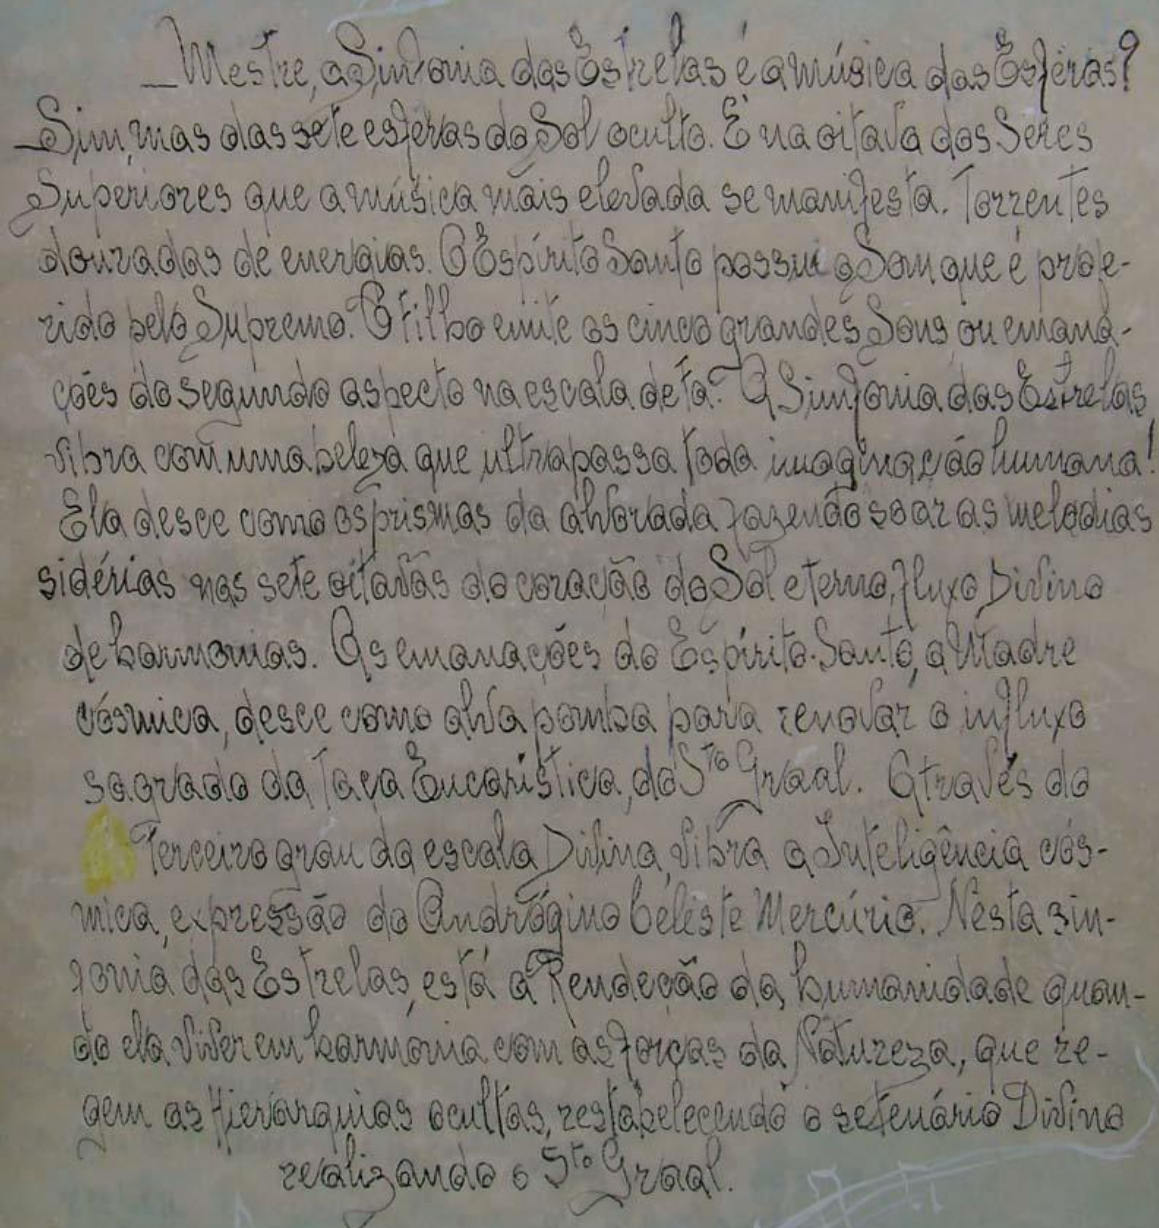 _ Mestre, a Sinfonia das Estrelas é a música das Esferas?
_ Sim, mas das sete esferas do Sol oculto. É na oitava dos Seres
Superiores que a música mais elevada se manifesta. Torrentes
douradas de energias. O Espírito Santo possui o Som que é profe-
rido pelo Supremo. O Filho emite os cinco grandes Sons ou emana-
ções do segundo aspecto na escala de fá. A Sinfonia das Estrelas
vibra com uma beleza que ultrapassa toda imaginação humana!
Ela desce como os prismas da alvorada fazendo soar as melodias
sidérias nas sete oitavas do coração do Sol eterno, fluxo Divino
de harmonias. As emanações do Espírito-Santo, a Madre
cósmica, desce como alva pomba para renovar o influxo
sagrado da Taça Eucarística, do Sto Graal. Através do
Terceiro grau da escala Divina, vibra a Inteligência cós-
mica, expressão do Andrógino Celeste Mercúrio. Nesta sin-
fonia das Estrelas, está a Rendeção da humanidade quan-
do ela viver em harmonia com as forças da Natureza, que re-
gem as Hierarquias ocultas, restabelecendo o setenário Divino
realizando o Sto Graal.